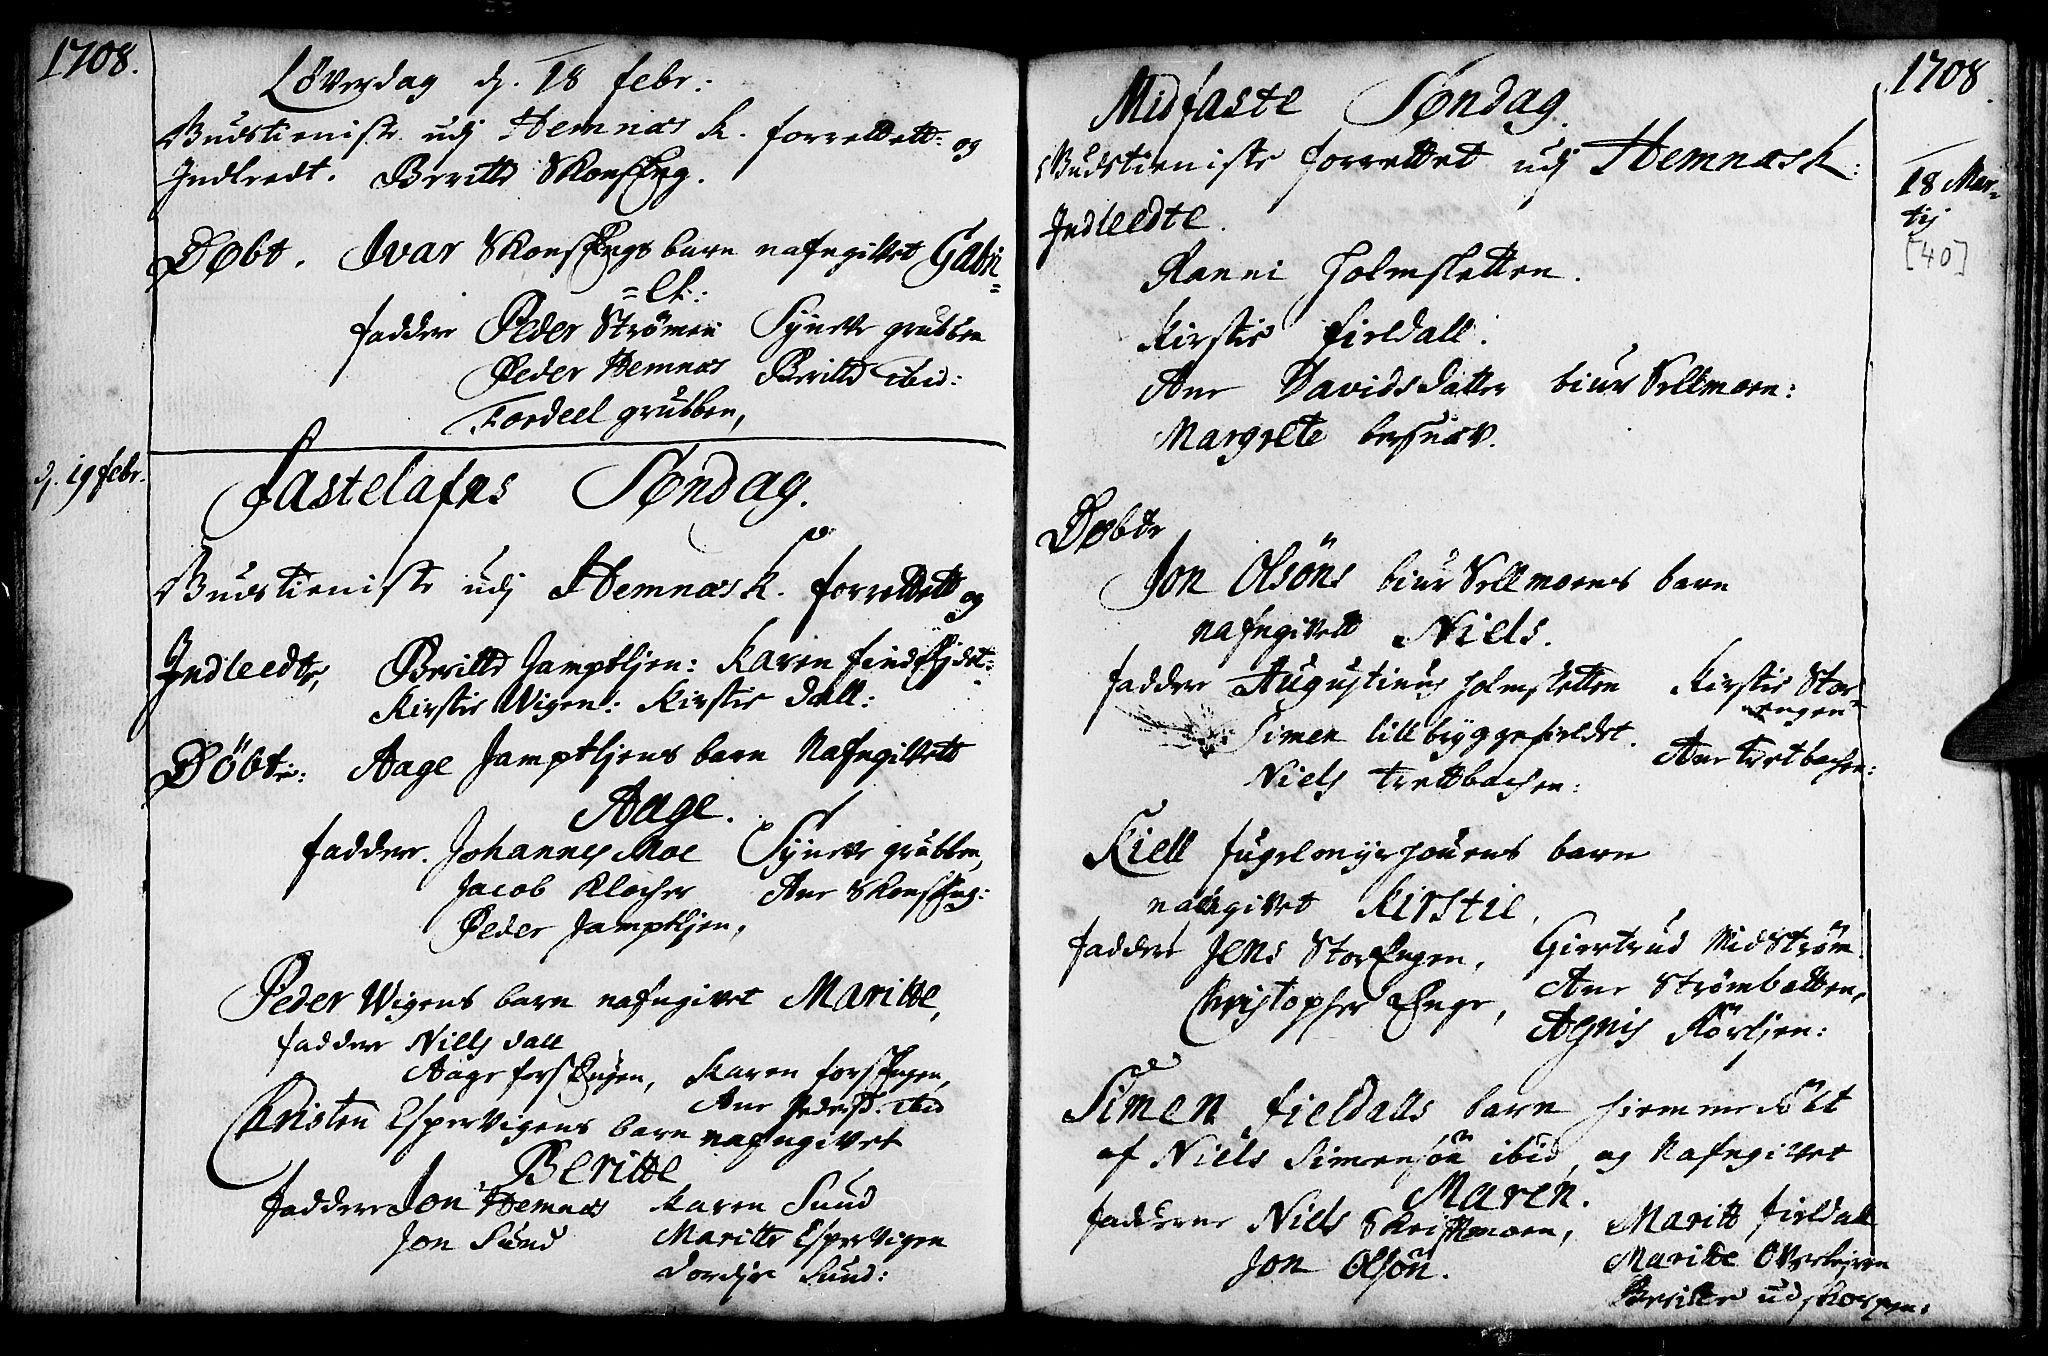 1708.
Löverdag d. 18 febr:
Gudstieniste udj Hemnæs k. forrettett: og
Indleedt. Beritte SkonsEng.
Døbt. Ivar SkonsEngs barn nafngifvet Gabri=
=el:
faddere Peder Strömen Synete grubben
Peder Hemnæs Beritte ibid:
Tordeel grubben,
d. 19 febr.
Fastelafns Søndag.
Gudstieniste udj Hemnæs k. forrettett og
Indleedte, Beritte Jamptljen: Karen
Kirstie Wigen: Kirstie Dall:
Döbte: Aage Jamptljens barn Nafngifvett
Aage.
faddere. Johannes Moe Synete grubben,
Jacob Klocher Ane SkonsEng:
Peder Jamptljen,
Peder Wigens barn nafngivet Maritte,
faddere Niells Dall
Aage forsEngen, Karen forsEngen,
Ane Pedersd. ibid
Christen Espervigens barn nafngivet
Beritte
faddere Jon Hemnæs Karen Sund
Jon Sund Maritte Espervigen
Dordje Sund:
1708.
Midfaste Søndag.
Gudstieniste forrettet udj Hemnæs k:
18 Mar=
tij
[40]
Indleedte.
Ranni Holmsletten.
Kirstie fieldall.
Ane Davidsdatter biur Sellmoen:
Margrete
Døbte
Jon Olsöns biur Sellmoens barn
nafngivett Niels.
faddere Augustinus Holmsletten Kirstie Stor
engen
Simen lillbyggefieldet.
Niels Trettbachen: Ane Tretbachen:
Kiell fuglemyrhouens barn
nafngivet Kirstie,
faddere Jens StorEngen, Giertrud Midström
Christopher Enge, Ane Strömbotten,
Agnis Körljen:
Simen fieldalls barn hiemmedöbt
af Niels Simensön ibid, og Nafngivet
Maren.
faddere Niels Skrifmoen, Maritt fieldall
Jon Olsön. Maritte Overlejren
Beritte